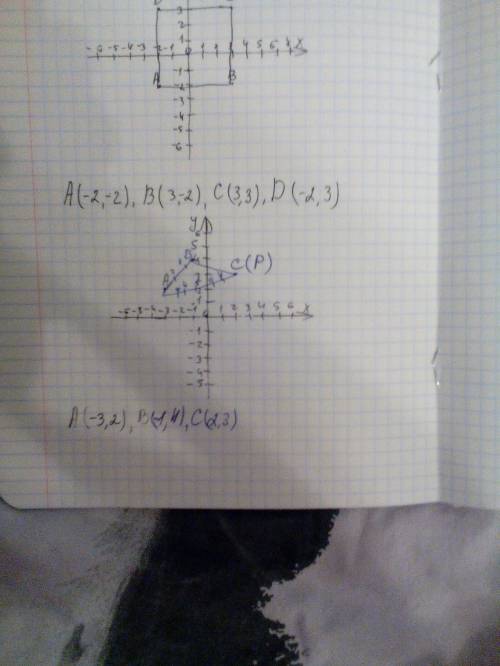 3
2
1
-6 -5 -4 -3 -2 -1 0 1 2 3 4 5 6 7 X
A B
-1
-2
-3
-4
-5
-6
A(-2,-2), B(3,-2), C(3,3), D(-2,3)
y
6
5
4
C(P)
A
-5 -4 -3 -2 -1 0 1 2 3 4 5 6 X
-1
-2
-3
-4
-5
A(-3,2), B(-1,4), C(2,3)